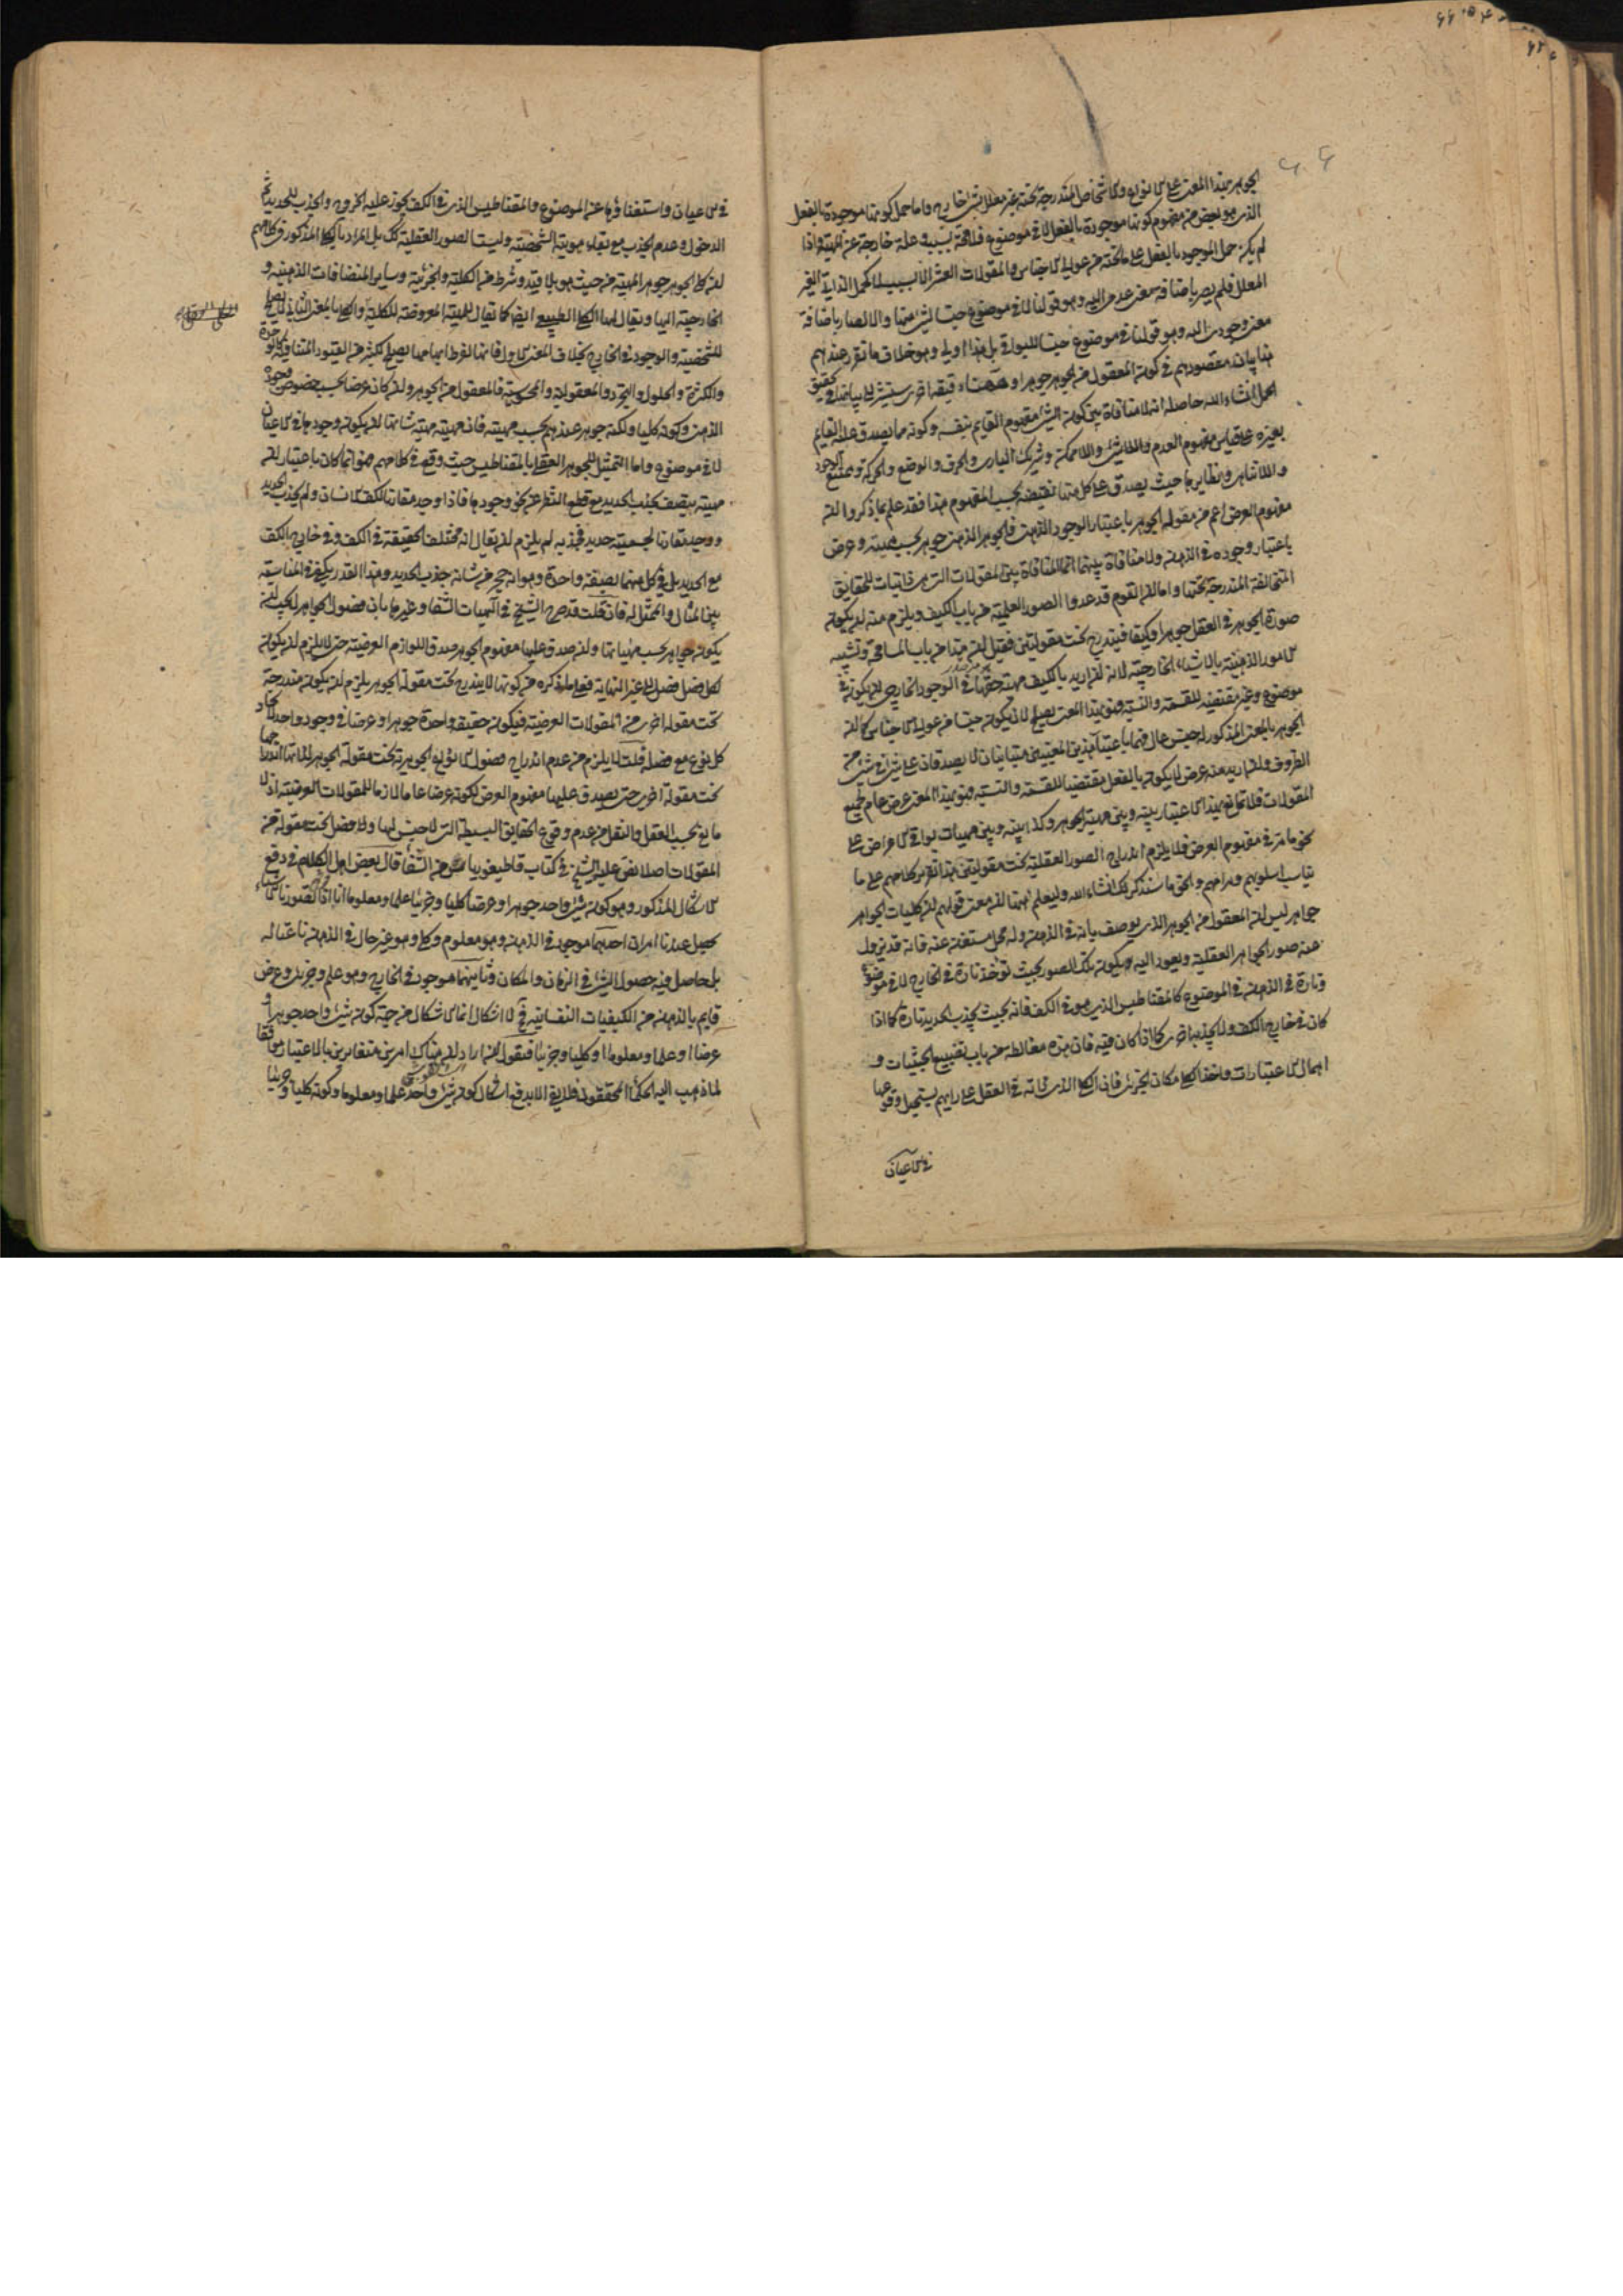 الجوهر بهذا المعنى على الانواع والاشخاص المندرجة تحته غير معلل بشئ خارج واما حمل كونها موجودة بالفعل
الذى هو بعض من مفهوم كونها موجودة بالفعل لا فى موضوع فلا محة بسبب وعلة خارجة عن المهية واذا
لم يكن حمل الموجود بالفعل على ما تحته من عوالى الاجناس والمقولات العشر الا بسبب لا كحمل الذاتى الغير
المعلل فلم يصر باضافة معنى عدمى اليه وهو قولنا لا فى موضوع جنسا لشئ منها والا لصار باضافة
معنى وجودى اليه وهو قولنا فى موضوع جنسا للبواقى بل هذا اولى وهو خلاف ما تقرر عندهم
هذا بيان مقصودهم فى كون المعقول من الجوهر جوهرا وههنا دقيقة اخرى سنشير الى بيانها فى تحقيق
الحمل انشاء الله حاصله انه لا منافاة بين كون الشئ مفهوم القايم بنفسه وكونه مما يصدق عليه القايم
بغيره على قياس مفهوم العدم واللاشئ واللاممكن وشريك البارى والحرف والوضع والحركة وممتنع الوجود
واللاتناهى ونظايرها حيث يصدق على كل منها نقيضه بحسب المفهوم هذا فقد علم بما ذكروا ان
مفهوم العرض اعم من مقولة الجوهر باعتبار الوجود الذهنى فالجوهر الذهنى جوهر بحسب مهيته وعرض
باعتبار وجوده فى الذهن ولا منافاة بينهما انما المنافاة بين المقولات التى هى ذاتيات للحقايق
المتخالفة المندرجة تحتها واما ان القوم قد عدوا الصور العلمية من باب الكيف ويلزم منه ان يكون
صورة الجوهر فى العقل جوهرا وكيفا فيندرج تحت مقولتين فقيل ان هذا من باب المسامحة وتشبيه
الامور الذهنية بالاشياء الخارجية لانه ان اريد بالكيف مهية حقها فى الوجود الخارجى ان يكون فى
موضوع وغير مقتضية للقسمة والنسبة فهو بهذا المعنى يصلح لان يكون جنسا من عوالى الاجناس كما ان
الجوهر بالمعنى المذكور له جنس عال فهما باعتبار هذين المعنيين متباينان لا يصدقان على شئ فى شئ من
الظروف وان اريد منه عرض لا يكون بالفعل مقتضيا للقسمة والنسبة فهو بهذا المعنى عرض عام لجميع
المقولات فلا تمانع بهذا الاعتبار بينه وبين مهية الجوهر وكذا بينه وبين مهيات بواقى الاعراض على
نحو ما مر فى مفهوم العرض فلا يلزم اندراج الصور العقلية تحت مقولتين هذا تقرير كلامهم على ما
يناسب اسلوبهم ومرامهم والحق ما سنذكر لك انشاء الله وليعلم ايهنا ان معنى قولهم ان كليات الجواهر
جواهر ليس ان المعقول من الجوهر الذى يوصف بانه فى الذهن وله محل مستغن عنه فانه قد يزول
عنه صور الجواهر العقلية ويعود اليه ويكون تلك الصور بحيث توخذ تارة فى الخارج لا فى موضوع
وتارة فى الذهن فى الموضوع كالمقناطيس الذى هو فى الكف فانه بحيث يجذب الحديد تارة كما اذا
كان فى خارج الكف ولا يجذب اخرى كما اذا كان فيه فان هذه مغالطة من باب تضييع الحيثيات و
اهمال الاعتبارات واخذ الكلى مكان الجزئى فان الكلى الذى ذاته فى العقل على رايهم يستحيل وقوعها
فى الاعيان
فى الاعيان واستغناؤها عن الموضوع والمقناطيس الذى فى الكف يجوز عليه الخروج والجذب للحديد ثم
الدخول وعدم الجذب مع بقاء هويته الشخصية وليست الصور العقلية كك بل المراد بالكلى المذكور فى كلامهم
ان كلى الجوهر جوهر المهية من حيث هو بلا قيد وشرط من الكلية والجزئية وساير المنضافات الذهنية و
الخارجية اليها ويقال لها الكلى الطبيعى ايضا كما يقال للمهية المعروضة للكلية والكلى بالمعنى الثانى لا يصلح
للشخصية والوجود فى الخارج بخلاف المعنى الاول فانها لفرط ابهامها يصلح لكثير من القيود المتنافية كالوحدة
والكثرة والحلول والتجرد والمعقولية والمحسوسية فالمعقول من الجوهر وان كان عرضا بحسب خصوص وجوده
الذهنى وكونه كليا ولكنه جوهر عندهم بحسب مهيته فان مهيته مهية شانها ان يكون وجودها فى الاعيان
لا فى موضوع واما التمثيل للجوهر العقلى بالمقناطيس حيث وقع فى كلامهم فهو انما كان باعتبار ان
مهيته يتصف بجذب الحديد مع قطع النظر عن نحو وجودها فاذا وجد مقارنا لكف الانسان ولم يجذب الحديد
ووجد مقارنا لجسمية حديد فجذبه لم يلزم ان يقال انه مختلف الحقيقة فى الكف وفى خارج الكف
مع الحديد بل فى كل منهما بصفة واحدة وهو انه حجر من شانه جذب الحديد وهذا القدر يكفى فى المناسبة
بين المثال والممثل له فان قلت قد صرح الشيخ فى الهيات الشفا وغيرها بان فصول الجواهر لا يجب ان
يكون جواهر بحسب مهياتها وان صدق عليها مفهوم الجوهر صدق اللوازم العرضية حتى لا يلزم ان يكون
لكل فصل فصل الى غير النهاية فعلى ما ذكره من كونها لا يندرج تحت مقولة الجوهر يلزم ان يكون مندرجة
تحت مقولة اخرى من المقولات العرضية فيكون حقيقة واحدة جوهرا وعرضا فى وجود واحد لاتحاد
كل نوع مع فصله قلت لا يلزم من عدم اندراج فصول الانواع الجوهرية تحت مقولة الجوهر لذاتها اندراجها
تحت مقولة اخرى حتى يصدق عليها مفهوم العرض لكونه عرضا عاما لازما للمقولات العرضية اذ لا
مانع بحسب العقل والنقل من عدم وقوع الحقايق البسيطة التى لا جنس لها ولا فصل تحت مقولة من
المقولات اصلا نص عليه الشيخ فى كتاب قاطيغورياس من الشفا قال بعض اهل الكلام فى دفع
الاشكال المذكور وهو كون شئ واحد جوهرا وعرضا كليا وجزئيا علما ومعلوما انا اذا تصورنا الاشياء
يحصل عندنا امران احدهما موجود فى الذهن وهو معلوم وكلى وهو غير حال فى الذهن ناعتا له
بل حاصل فيه حصول الشئ فى الزمان والمكان وثانيهما موجود فى الخارج وهو علم وجزئى وعرض
قايم بالذهن من الكيفيات النفسانية فح لا اشكال انما الاشكال من جهة كون شئ واحد جوهرا و
عرضا او علما ومعلوما او كليا وجزئيا فنقول ان اراد ان هناك امرين متغايرين بالاعتبار موافقا
لما ذهب اليه الحكماء المحققون فلا يفى الا بدفع اشكال كون شئ واحد علما ومعلوما وكونه كليا وجزئيا